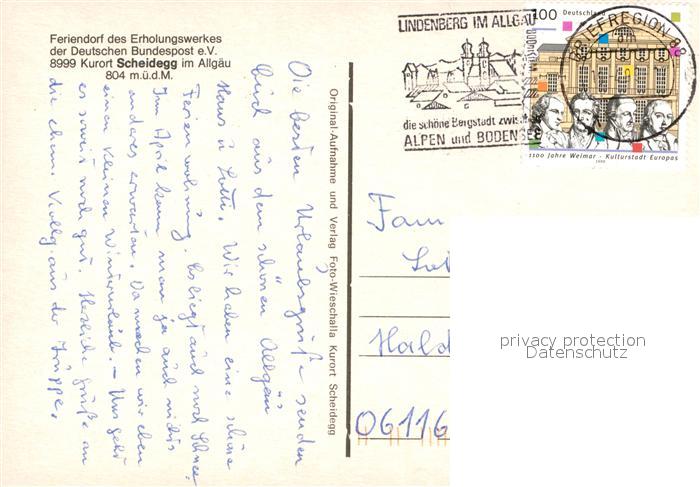 Feriendorf des Erholungswerkes
der Deutschen Bundespost e.V.
8999 Kurort Scheidegg im Allgäu
804 m.ü.d.M.
LINDENBERG IM ALLGÄU
die schöne Bergstadt zwischen
ALPEN und BODENSEE
BRIEFREGION 88
100 Deutschland
1100 Jahre Weimar - Kulturstadt Europas
1999
Original-Aufnahme und Verlag Foto-Wieschalla Kurort Scheidegg
Die besten Urlaubsgrüße senden
Euch aus dem schönen Allgäu
Hans u. Lotti. Wir haben eine schöne
Ferienwohnung. Es liegt auch noch Schnee.
Im April kann man ja auch nichts
anderes erwarten. Da machen wir eben
einen kleinen Winterurlaub. - Uns geht
es soweit noch gut. Herzliche Grüße an
die ehem. Kolleg. aus der Truppe.
Fam
Hald
06116
privacy protection
Datenschutz